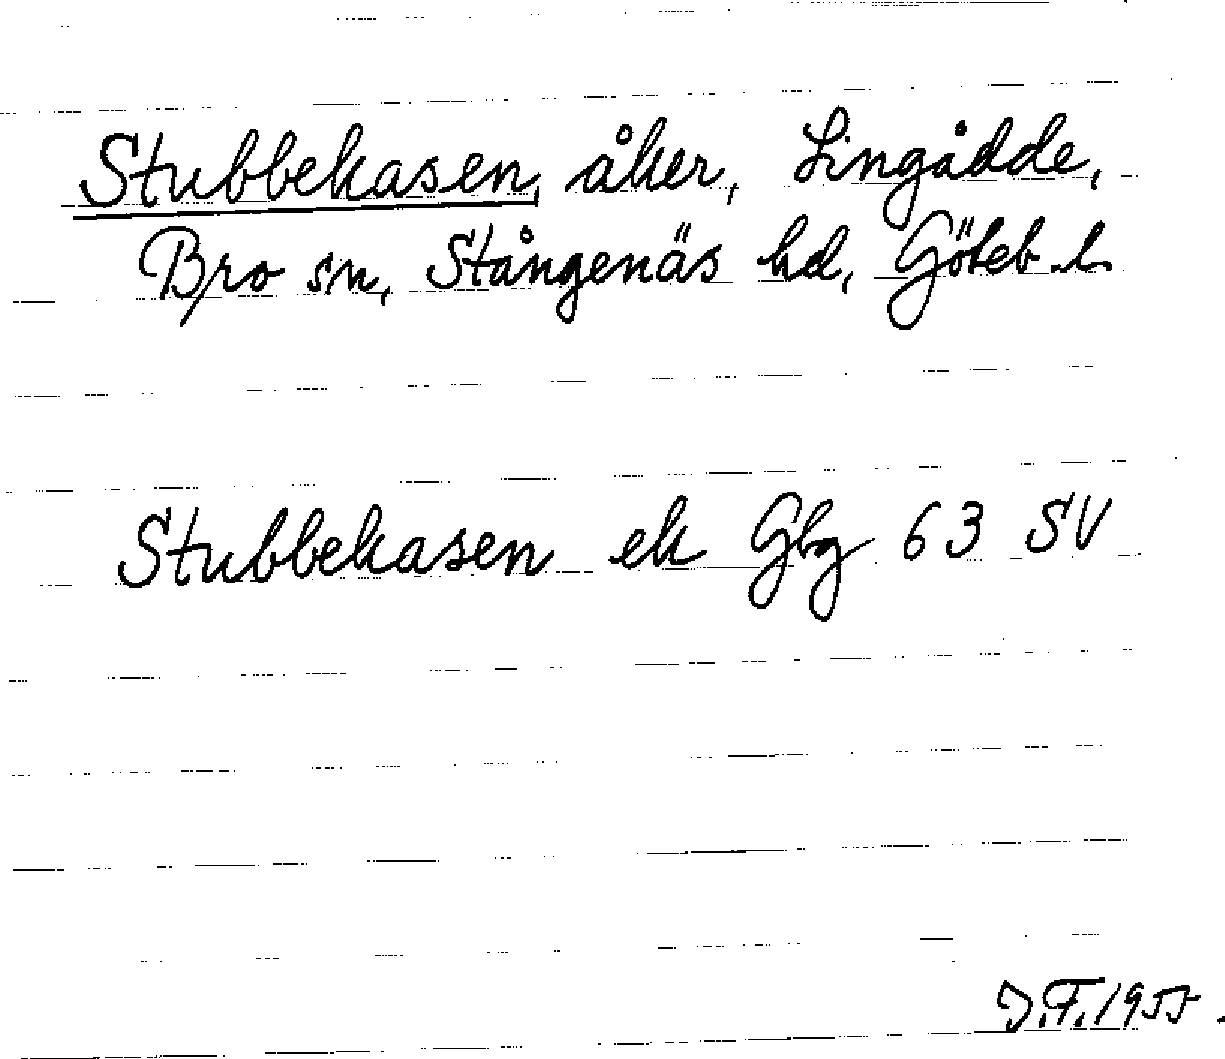 Stubbekasen, åker, Lingådde,
Bro sn, Stångenäs hd, Göteb. l.
Stubbekasen ek Gbg 63 SV
J.F. 1955.